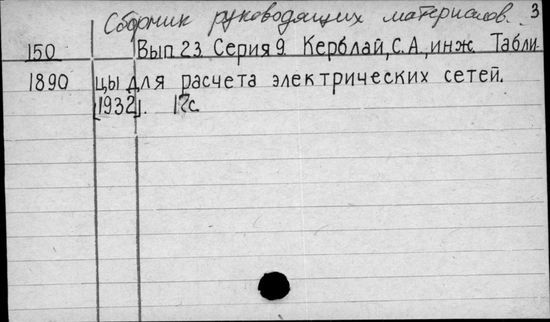 Сборник руководящих материалов. 3
150 Вып 23. Серия 9. Керблай, С.А, инж. Табли-
1890 цы для расчета электрических сетей.
[1932]. 17с.